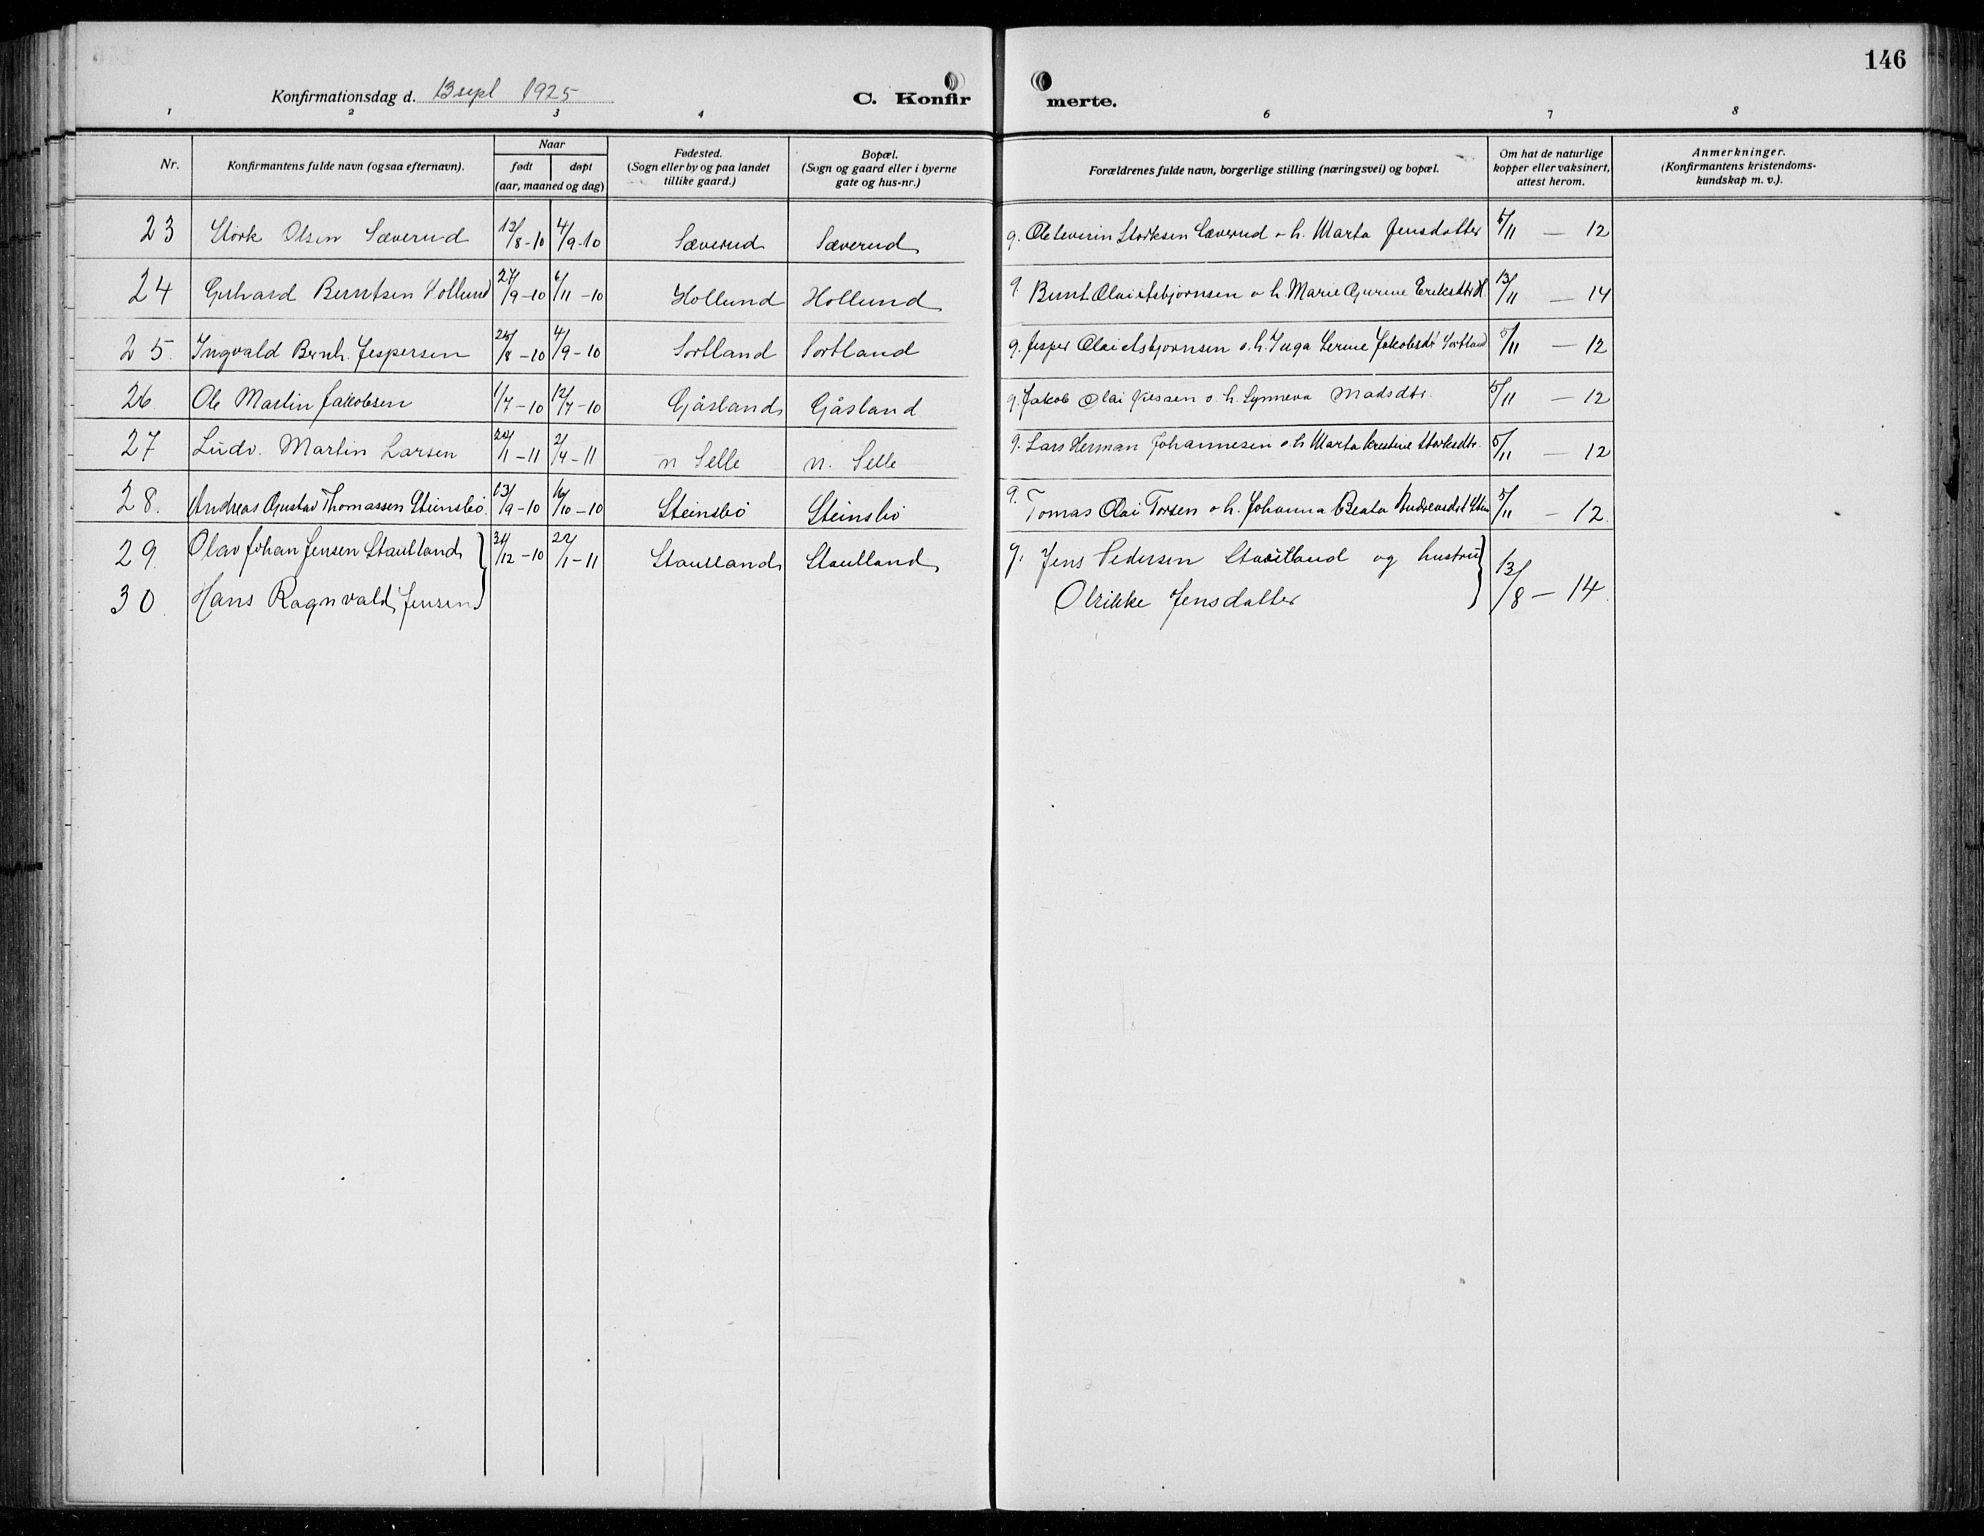 146
Konfirmationsdag d. 13 sept 1925
C. Konfirmerte.
1 2 3 4 5 6 7 8
Nr.
Konfirmantens fulde navn (ogsaa efternavn).
Naar
født døpt
(aar, maaned og dag)
Fødested.
(Sogn eller by og paa landet
tillike gaard.)
Bopæl.
(Sogn og gaard eller i byerne
gate og hus-nr.)
Forældrenes fulde navn, borgerlige stilling (næringsvei) og bopæl.
Om hat de naturlige
kopper eller vaksinert,
attest herom.
Anmerkninger.
(Konfirmantens kristendoms-
kundskap m. v.).
23 Størk Olsen Sæverud 12/8-10 4/9-10 Sæverud Sæverud g. Ole Severin Storksen Sæverud o. h. Marta Jensdatter 5/11 - 12
24 Gerhard Berntsen Hollund 27/9-10 6/11-10 Hollund Hollund g. Bernt Olai Asbjørnsen o. h. Marie Gurine Eriksdtr H 13/11 - 14
25. Ingvald Bernh. Jespersen 25/8-10 4/9-10 Sortland Sortland g. Jesper Olai Asbjørnsen o. h. Inga Serine Jakobsdt Sortland 5/11 - 12
26. Ole Martin Jakobsen 1/7-10 12/7-10 Gåsland Gåsland g. Jakob Olai o. h. Synneva Madsdtr. 5/11 - 12
27 Ludv. Martin Larsen 20/1-11 2/4-11 n Selle n. Selle g. Lars Herman Johannesen o. h Marta Kristine Storksdtr. 5/11 - 12
28. Andreas Gustav Thomassen Steinsbø. 13/9-10 16/10-10 Steinsbø Steinsbø g. Tomas Olai Torsen o. h. Johanna Beata Andreasdt Stein 5/11 - 12.
29. Olav Johan Jensen Stautland 31/12-10 22/1-11 Stautland Stautland g. Jens Pedersen Stautland og hustru 13/8 - 14.
30. Hans Ragnvald Jensen Olrikke Jensdatter